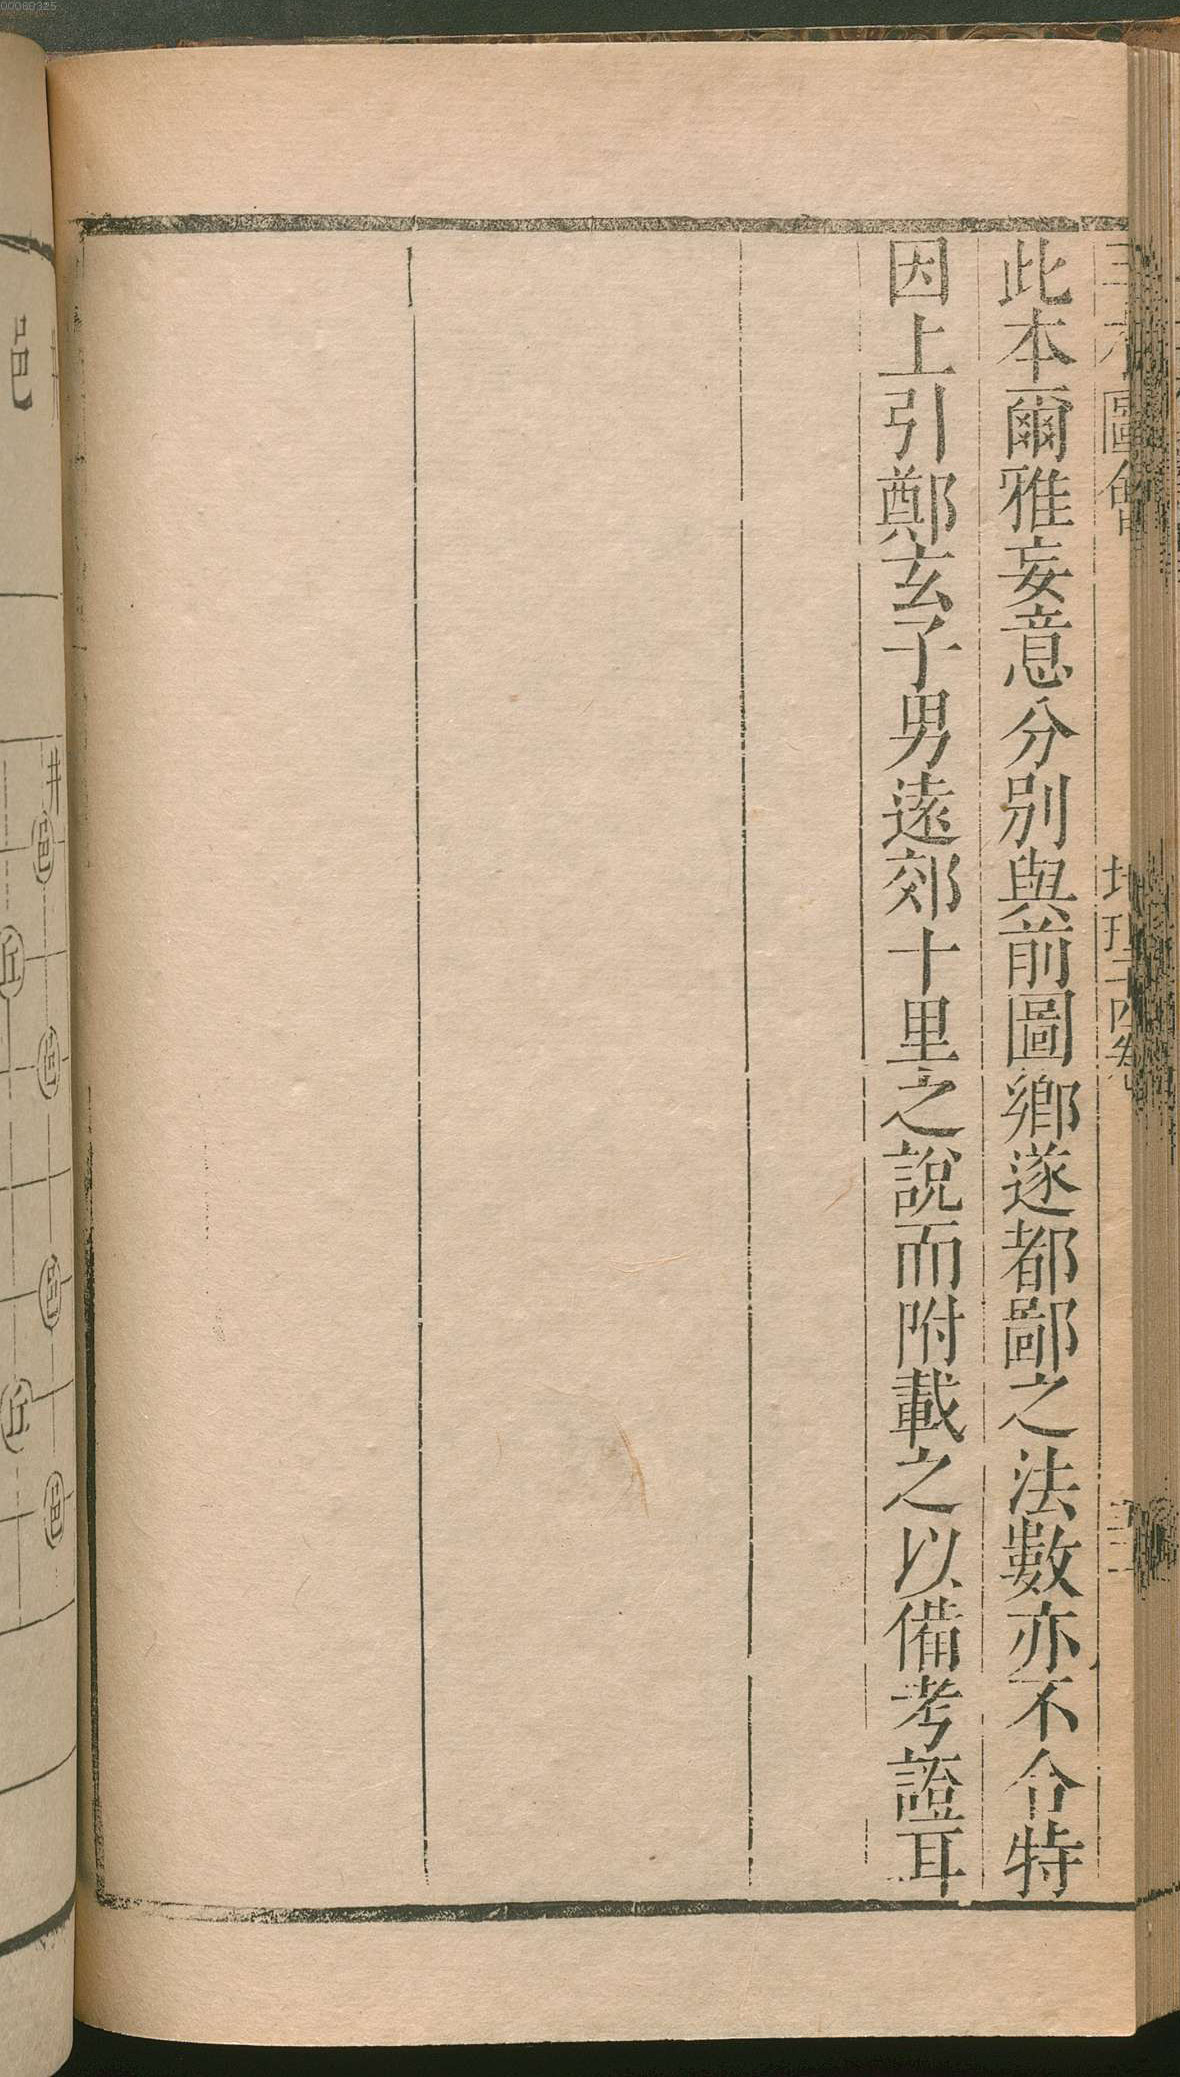 三才圖會
地理十四卷
此本爾雅妄意分別與前圖鄉遂都鄙之法數亦不合特
因上引鄭玄子男遠郊十里之說而附載之以備考證耳
邑
井
邑
邑
邑
邑
丘
丘
00000325